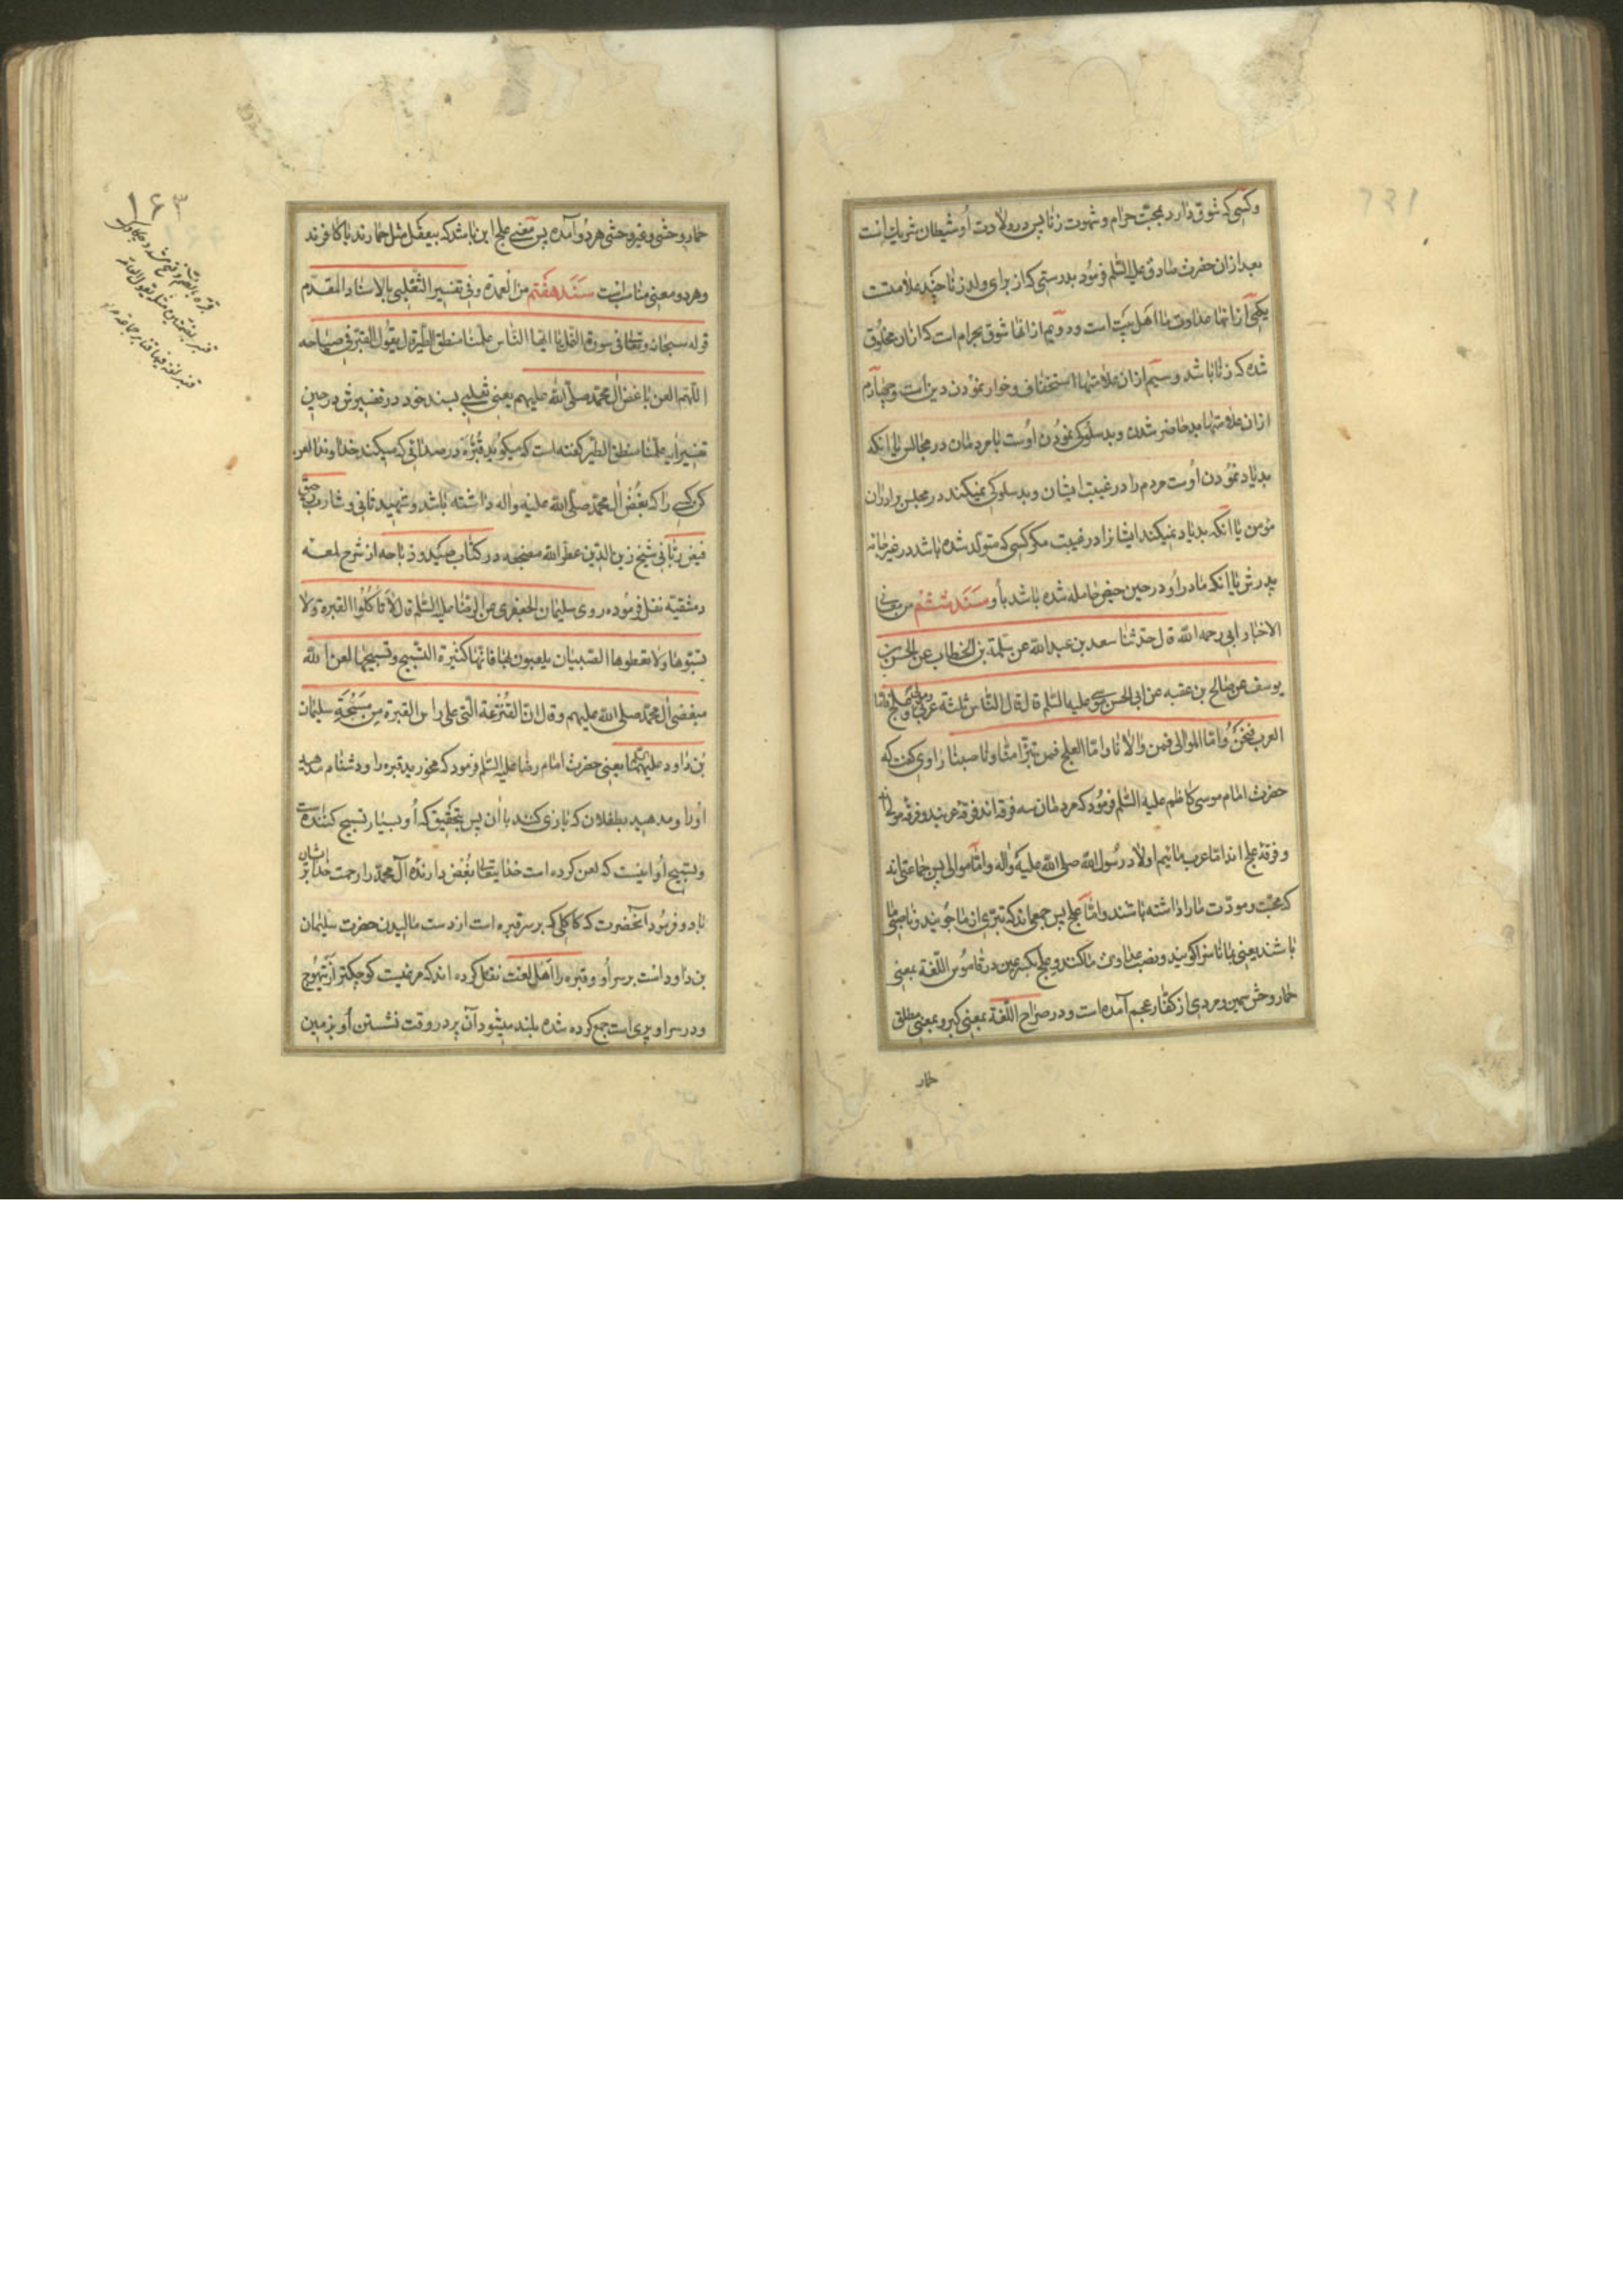 وکسی که شوق دارد بمحبّت حرام و شهوت زنا پس در ولادت اُو شیطان شریك است
بعد ازان حضرت صادق علیه السّلم فرمُود بدرستی که از برای ولد زنا چند علامتست
یکی از انها عداوت ما اهل بیت است و دویّم از انها شوق بحرام است که ازان مخلُوق
شده که زنا باشد و سیّم ازان علامتها استخفاف و خوار نمُودن دین است و چهارم
ازان علامتها بد حاضر شدن و بد سلُوکی نمُودن اوُست با مردمان در مجالس یا انکه
بد یاد نموُدن اوُست مردم را در غیبت ایشان و بد سلوکی نمیکند در مجلس برادران
مُومن یا انکه بد یاد نمیکند ایشانرا در غیبت مکر کسی که متولّد شده باشد در غیر خانه
پدرش یا انکه مادر اوُ در حین حیض حامله شده باشد باُو سَنَد شَشُم من معانی
الاخبار ابی رحمه الله قال حدّثنا سعد بن عبد الله عن سلمة بن الخطاب عن الحسن بن
یوسف عن صالح بن عقبه عن ابی الحسن موسی علیه السّلم قال قال النّاس ثلثة عربی و مولی و علج فامّا
العرب فنحنُ وامّا الموالی فمن والانا وامّا العلج فمن تبرّا منّا و ناصبنا راوی کفت که
حضرت امام موسی کاظم علیه السّلم فرموُد که مردمان سه فرقه اند فرقهٔ عربند و فرقه موالی اند
و فرقهٔ علج اند امّا عرب مائیم اولاد رسُول الله صلی الله علیه واله و امّا موالی پس جماعتی اند
که محبّت و مودّت ما را داشته باشند و امّا علج پس جمعی اند که تبرّی از ما جوُیند و ناصبی ما
باشند یعنی بما ناسزا کویند و نصب عداوت ما کنند و علج بکسر عین در قاموُس اللّغة بمعنی
حمار وحش سمین و مردی از کفّار عجم آمده است و در صراح اللّغة بمعنی کبر و بمعنی مطلق
حمار
۱۶۳
حمار وحشی و غیر وحشی هر دُو آمده پس معنی علج این باشد که بیعقل مثل حمارند یا کافرند
و هر دو معنی مناسبست سَنَد هفتم من العمدة و فی تفسیر الثّعلبی بالاسناد المقدّم
قوله سبحانه و تعالی فی سورة النّمل یا ایّها النّاس علّمنا منطق الطّیر قال یقوُل القبّر فی صیاحه
اللّهم العن باغض اٰل محمّد صلّی الله علیهم یعنی ثعلبی بسند خود در تفسیرش در حین
تفسیر ایه علّمنا منطق الطّیر کفته است که میکوید قُبّرَه در صدائی که میکند خداوندا لعن
کن کسی را که بغُض اٰل محمّد صلّی الله علیه و اله داشته باشد و شهید ثانی و شارب رحیق
فیض ربّانی شیخ زین الدّین عطّر الله مضجعه در کتاب صید و ذباحه از شرح لمعه
دمشقیّه نقل فرموُده روی سلیمان الجعفری عن الرضا علیه السّلم قال لا تاکُلوا القبرة و لا
تسبّوها و لا تعطوها الصّبیان یلعبون بها فانّها کثیرة التّسبیح و تسبیحها لعن الله
مبغضی اٰل محمّد صلی الله علیهم و قال انّ القُنزعة الّتی علی راس القبرة من مَسْحَةِ سلیمان
بن داود علیهما یعنی حضرت امام رضا علیه السّلم فرمود که مخورید قبره را و دشنام مدهید
اوُرا و مدهید بطفلان که بازی کنند باان پس بتحقیق که اُو بسیار تسبیح کننده است
و تسبیح اُو اینست که لعن کرده است خدایتعالی بغُض دارندهٔ آل محمّد را و رحمت خدا بر ایشان
باد و فرموُد انحضرت که کاکلی که بر سر قبره است از دست مالیدن حضرت سلیمان
بن داود است بر سر اُو و قبره را اهل لغت نقل کرده اند که مرغیست کوچکتر از تیهُوج
و در سر او پری است جمع کرده شده بلند میشود آن پر در وقت نشستن اُو بزمین